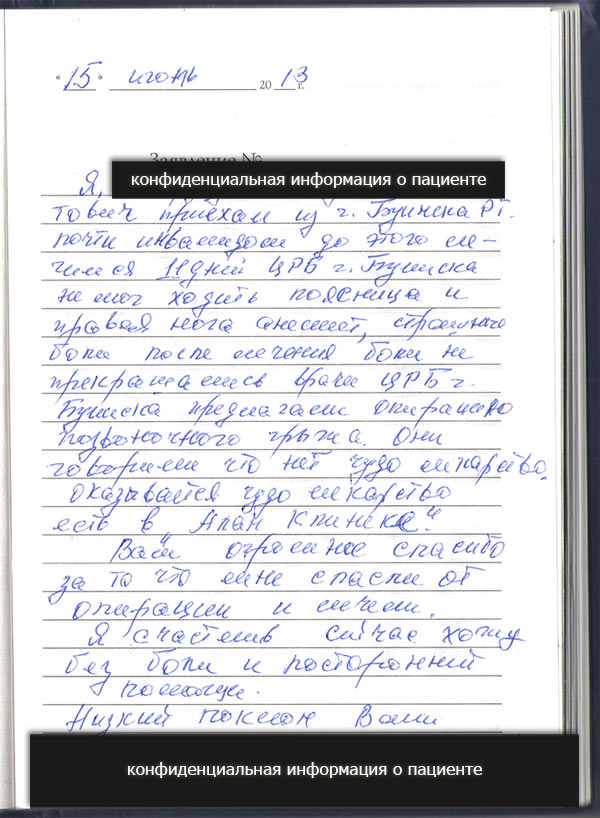 "15" июнь 2013 г.
Заявление №
конфиденциальная информация о пациенте
Я,
тович приехал из г. Буинска РТ.
почти инвалидом до этого ле-
чился 11 дней ЦРБ г. Буинска
не мог ходить поясница и
правая нога анемит, страшные
боли после лечения боли не
прекращались врачи ЦРБ г.
Буинска предлагали опирацию
позвоночного грыжа. Они
говорили что нет чудо лекарство.
оказывается чудо лекарство
есть в "Апан Клинике".
Вам огромное спасибо
за то что мне спасли от
опирации и лечели.
Я счастлив сичас хожу
без боли и посторонний
помощи.
Низкий поклон Вам
конфиденциальная информация о пациенте